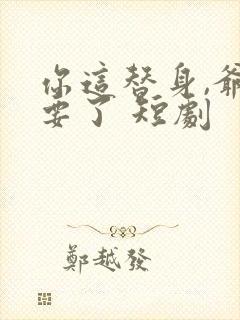 你這替身,爺
要了 短劇
鄭越發